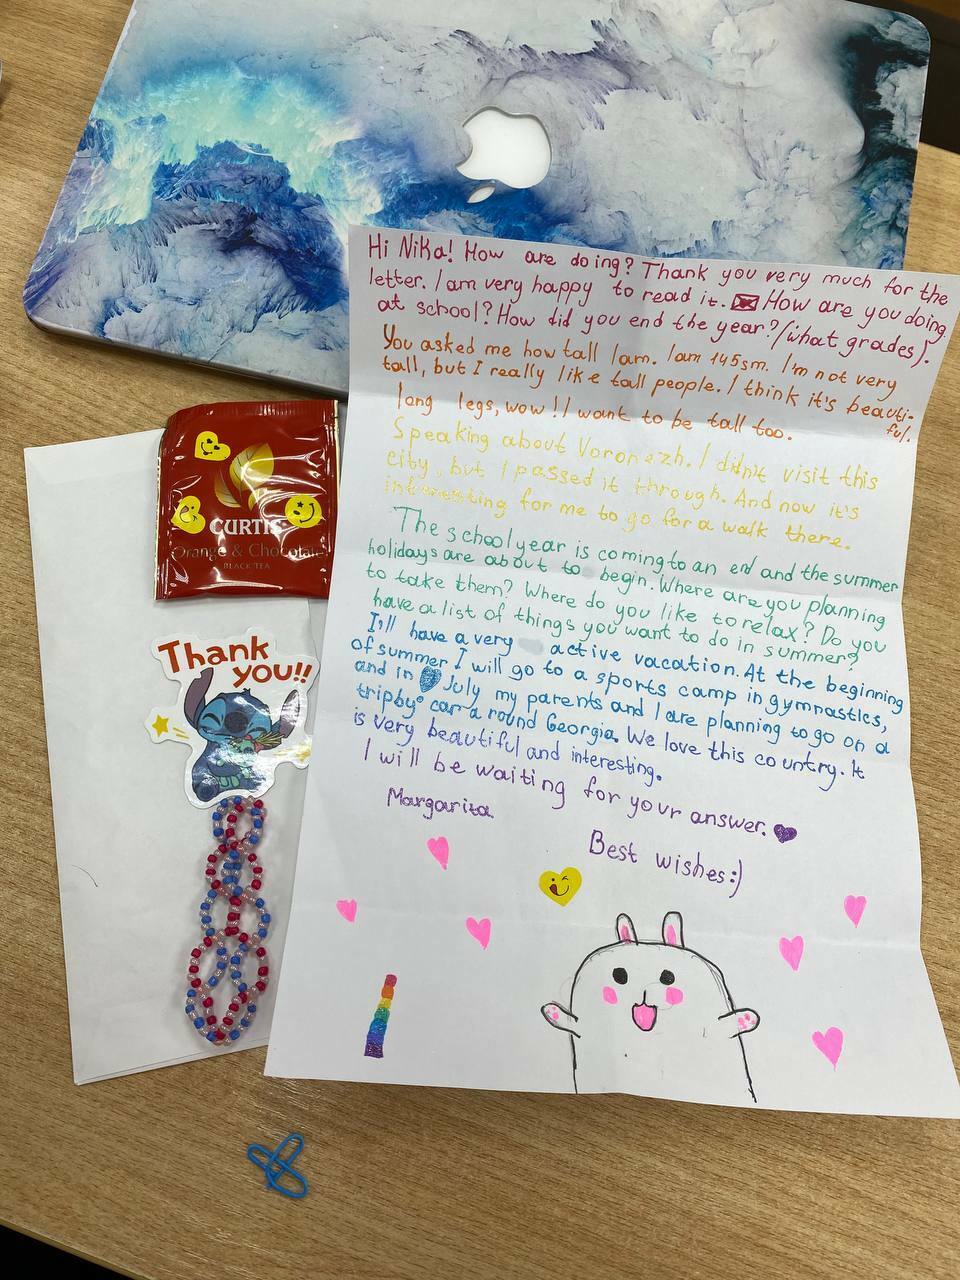 Hi Nika! How are doing? Thank you very much for the
letter. I am very happy to read it. How are you doing
at school? How did you end the year? (what grades).
You asked me how tall I am. I am 145sm. I'm not very
tall, but I really like tall people. I think it's beauti-
ful.
long legs, wow! I want to be tall too.
Speaking about Voronezh. I didn't visit this
city, but I passed it through. And now it's
interesting for me to go for a walk there.
The school year is coming to an end and the summer
holidays are about to begin. Where are you planning
to take them? Where do you like to relax? Do you
have a list of things you want to do in summer?
I'll have a very active vacation. At the beginning
of summer I will go to a sports camp in gymnastics,
and in July my parents and I are planning to go on a
trip by car a round Georgia. We love this country. It
is very beautiful and interesting.
I will be waiting for your answer.
Margarita
Best wishes:)
CURTIS
Orange & Chocolate
BLACK TEA
Thank
you!!